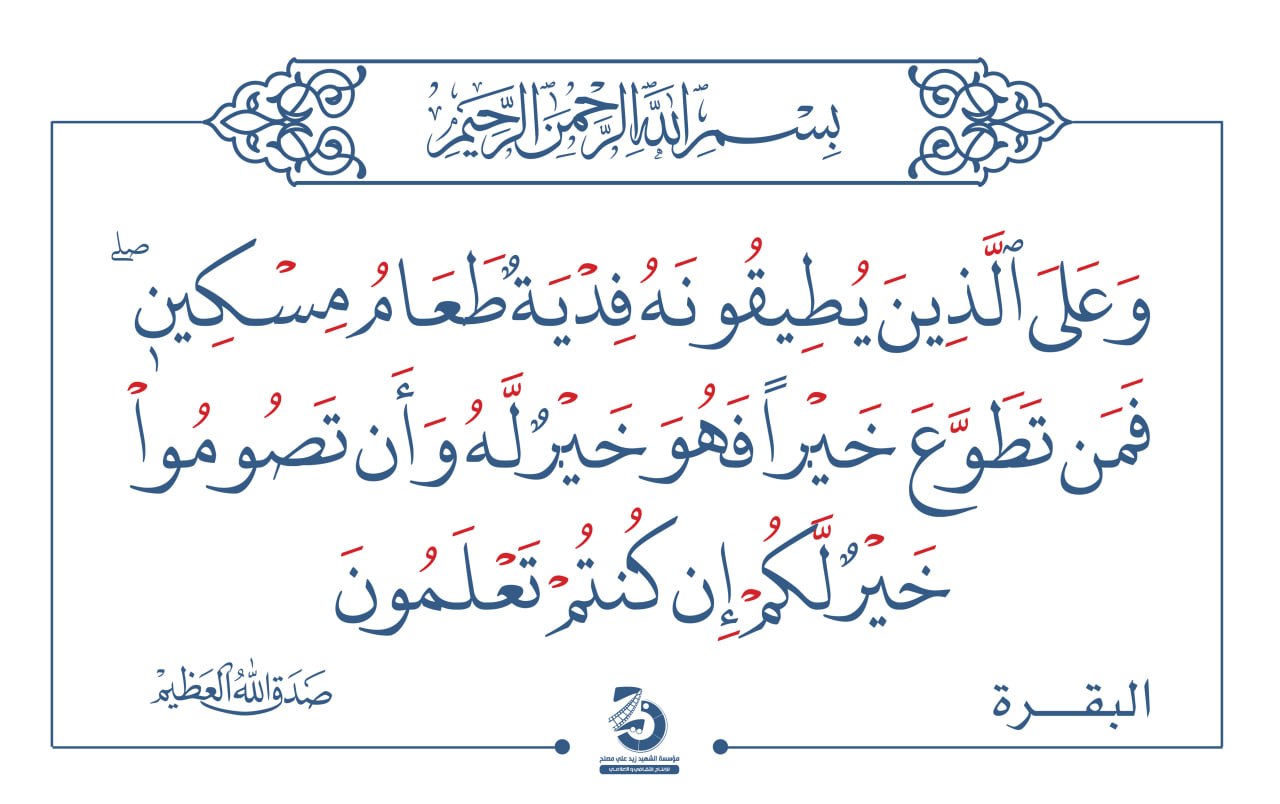 بِسْمِ اللَّهِ الرَّحْمَٰنِ الرَّحِيمِ
وَعَلَى ٱلَّذِينَ يُطِيقُونَهُ فِدْيَةٌ طَعَامُ مِسْكِينٍ ۖ
فَمَن تَطَوَّعَ خَيْراً فَهُوَ خَيْرٌ لَّهُ وَأَن تَصُومُواْ
خَيْرٌ لَّكُمْ إِن كُنتُمْ تَعْلَمُونَ
البقرة
صَدَقَ اللَّهُ العَظِيمْ
مؤسسة الشهيد زيد علي مصلح
للإنتاج الثقافي والإعلامي